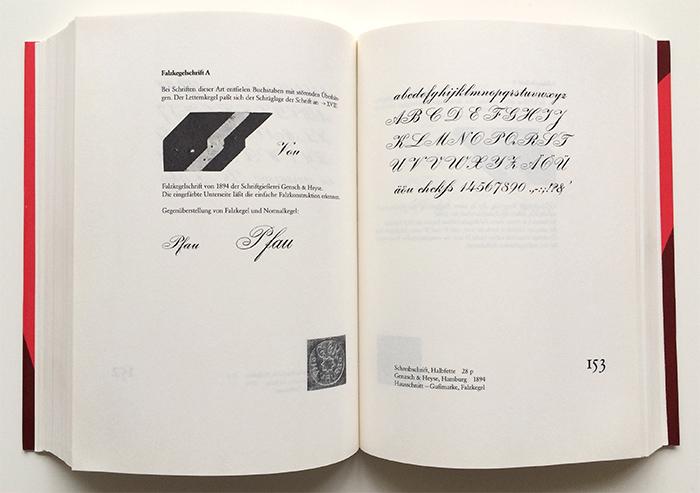 Falzkegelschrift A
Bei Schriften dieser Art entfielen Buchstaben mit störenden Überhän-
gen. Der Letternkegel paßt sich der Schräglage der Schrift an → XVII
Von
Falzkegelschrift von 1894 der Schriftgießerei Genzsch & Heyse.
Die eingefärbte Unterseite läßt die einfache Falzkonstruktion erkennen.
Gegenüberstellung von Falzkegel und Normalkegel:
Pfau Pfau
abcdefghijklmnopqrstuvwxyz
A B C D E F G H I J
K L M N O P Q R S T
U V W X Y Z Ä Ö Ü
äöu
1 4 5 6 7 8 9 0 .,-:;!?&'
Schreibschrift, Halbfette 28 p
Genzsch & Heyse, Hamburg 1894
Hausschnitt – Gußmarke, Falzkegel
153